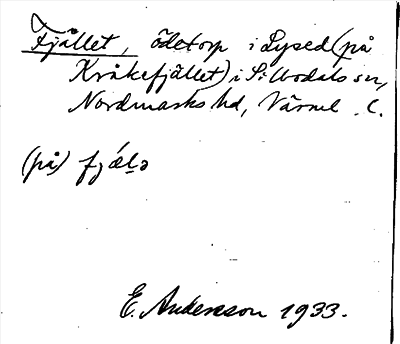 Fjället, ödetorp i Lysed (på
Kråkefjället) i Sillbodals sn,
Nordmarks hd, Värml. l.
(på) fjǽlə
E. Andersson 1933.